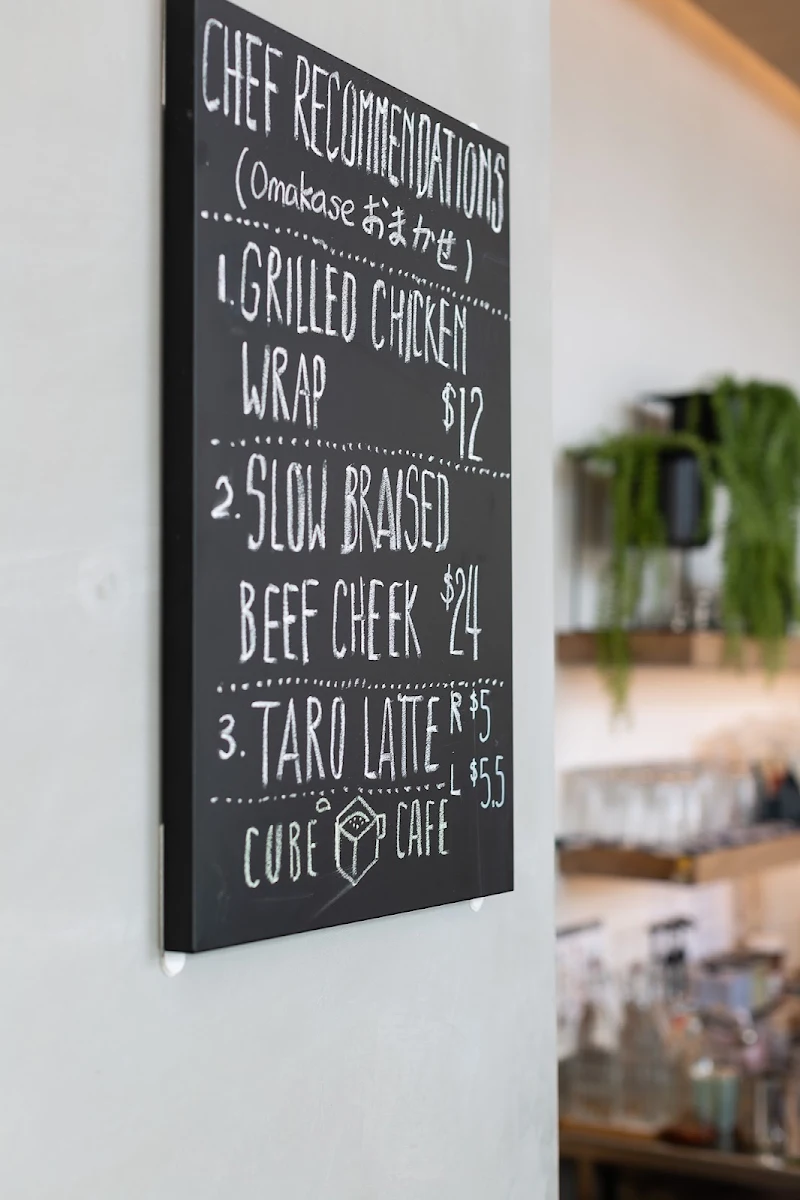 CHEF RECOMMENDATIONS
(Omakase おまかせ)
1. GRILLED CHICKEN
WRAP $12
2. SLOW BRAISED
BEEF CHEEK $24
3. TARO LATTE R $5
L $5.5
CUBE CAFE